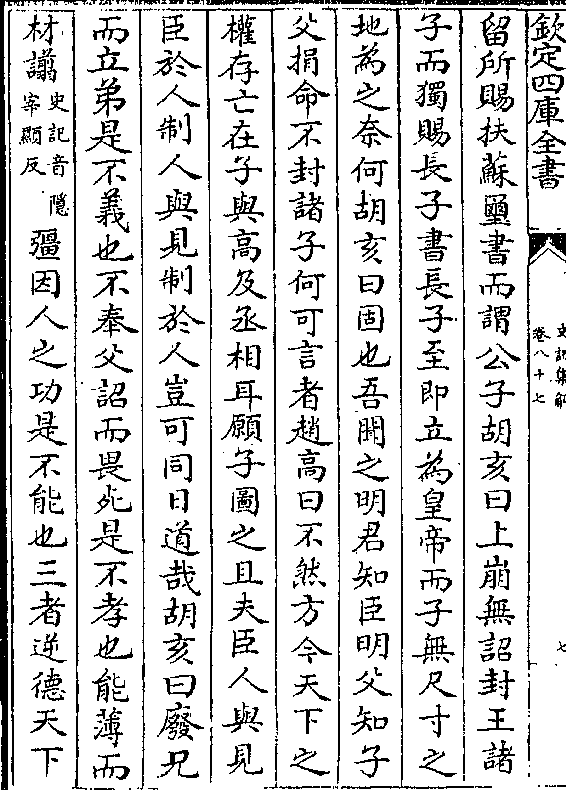 欽定四庫全書
史記集解
卷八十七
七
留所賜扶蘇璽書而謂公子胡亥曰上崩無詔封王諸
子而獨賜長子書長子至即立為皇帝而子無尺寸之
地為之奈何胡亥曰固也吾聞之明君知臣明父知子
父捐命不封諸子何可言者趙高曰不然方今天下之
權存亡在子與高及丞相耳願子圖之且夫臣人與見
臣於人制人與見制於人豈可同日道哉胡亥曰廢兄
而立弟是不義也不奉父詔而畏死是不孝也能薄而
材譾史記音隱宰顯反彊因人之功是不能也三者逆德天下